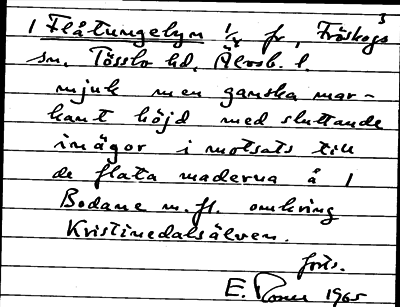 3
1 Flåtungebyn 1/4 fr, Fröskogs
sn, Tössbo hd, Älvsb. l.
mjuk men ganska mar-
kant höjd med sluttande
inägor i motsats till
de flata maderna å 1
Bodane m.fl. omkring
Kristinedalsälven.
forts.
E. 1965